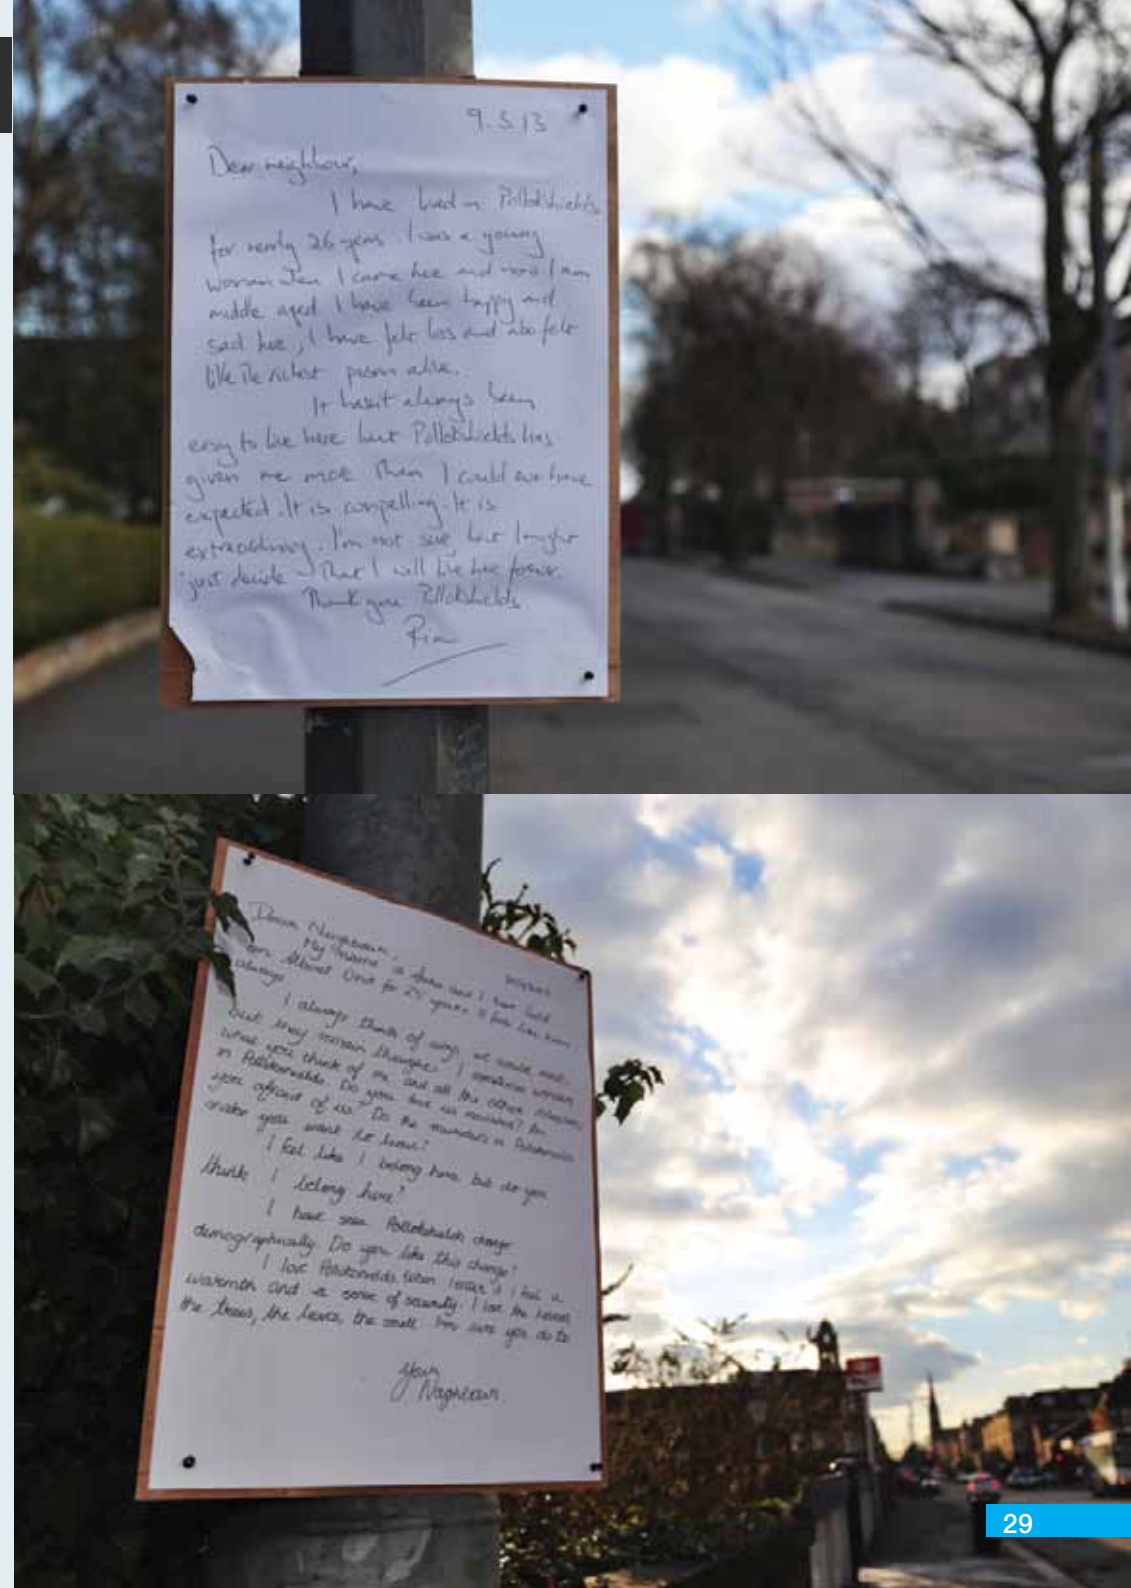 9.3.13
Dear neighbour,
I have lived in Pollokshields
for nearly 26 years. I was a young
woman when I came here and now I am
middle aged. I have been happy and
sad here, I have felt loss and also felt
like the richest person alive.
It hasn't always been
easy to live here but Pollokshields has
given me more than I could ever have
expected. It is compelling. It is
extraordinary. I'm not sure, but I might
just decide that I will live here forever.
Thank you Pollokshields
Dear Neighbour,
My name is and I have lived
on Albert Drive for 25 years. It feels like
always
I always think of ways we could meet,
but they remain thoughts. I sometimes wonder
what you think of me and all the other
in Pollokshields. Do you
you afraid of us? Do the in Pollokshields
make you want to leave?
I feel like I belong here but do you
think I belong here?
I have seen Pollokshields change
demographically. Do you like this change?
I love Pollokshields. When I I feel a
warmth and a sense of security. I love the
the trees, the leaves, the smell. I'm sure you do to
Your
Neighbour
29